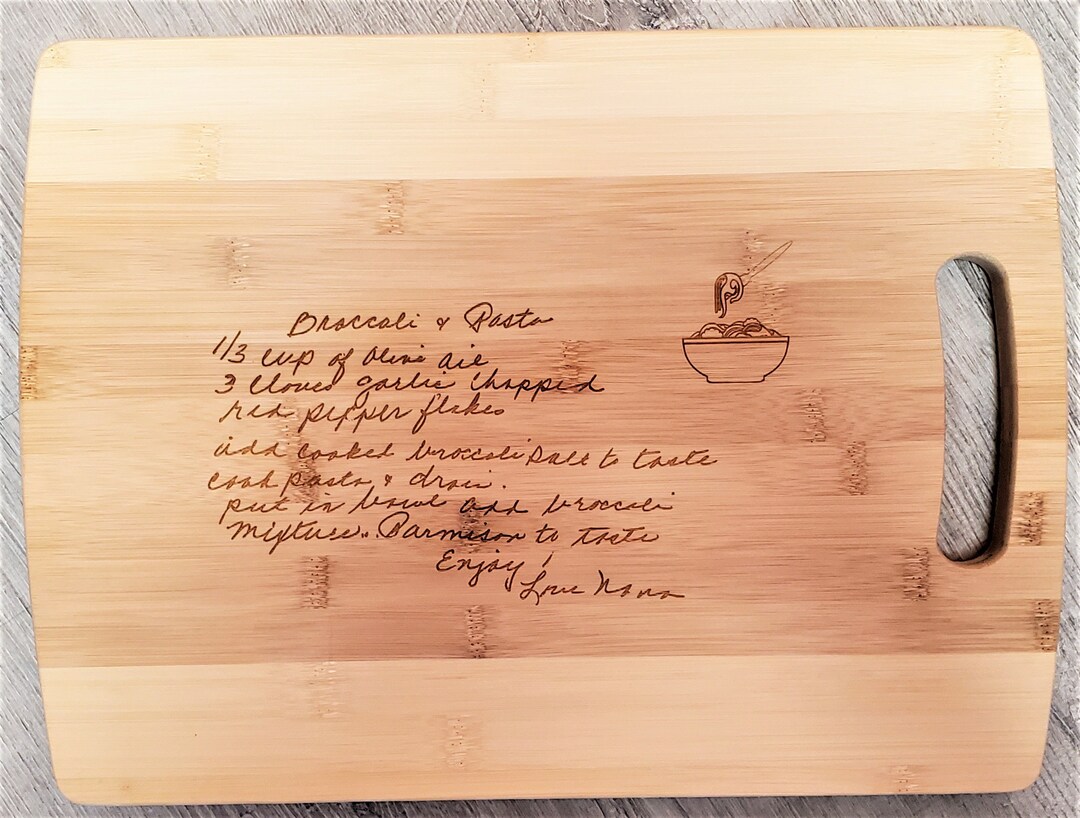 Broccoli & Pasta
1/3 cup of Olive oil
3 cloves garlic chopped
red pepper flakes
add cooked broccoli salt to taste
cook pasta & drain.
put in bowl add broccoli
mixture.. Parmison to taste
Enjoy!
Love Nana